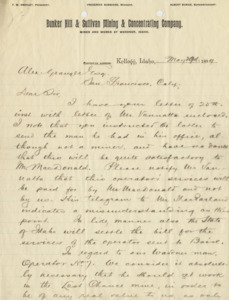 Bunker Hill & Sullivan Mining & Concentrating Company.
MINES AND WORKS AT WARDNER, IDAHO.
Kellogg, Idaho, May 19
San Francisco, Caly.
Dear Sir
I have your letter of 20th
inst with letter of Mr enclosed.
I note that you the letter to
send the man he had in his office, al
though not a miner, and have no
that this will be quite satisfactory to
Mr MacDonald. Please notify Mr
that this operators services will
be paid for by Mr MacDonald and not
by us. His telegram to Mr MacFarland
indicates a misunderstanding on this
point. In like manner also the State
of Idaho will settle the bill for the
services of the operator sent to Boise.
In regard to our Wardner man,
Operator No 9. We consider it absolute
ly necessary that he should get work
in the Last Chance mine, in order to
be of any real value to us as only